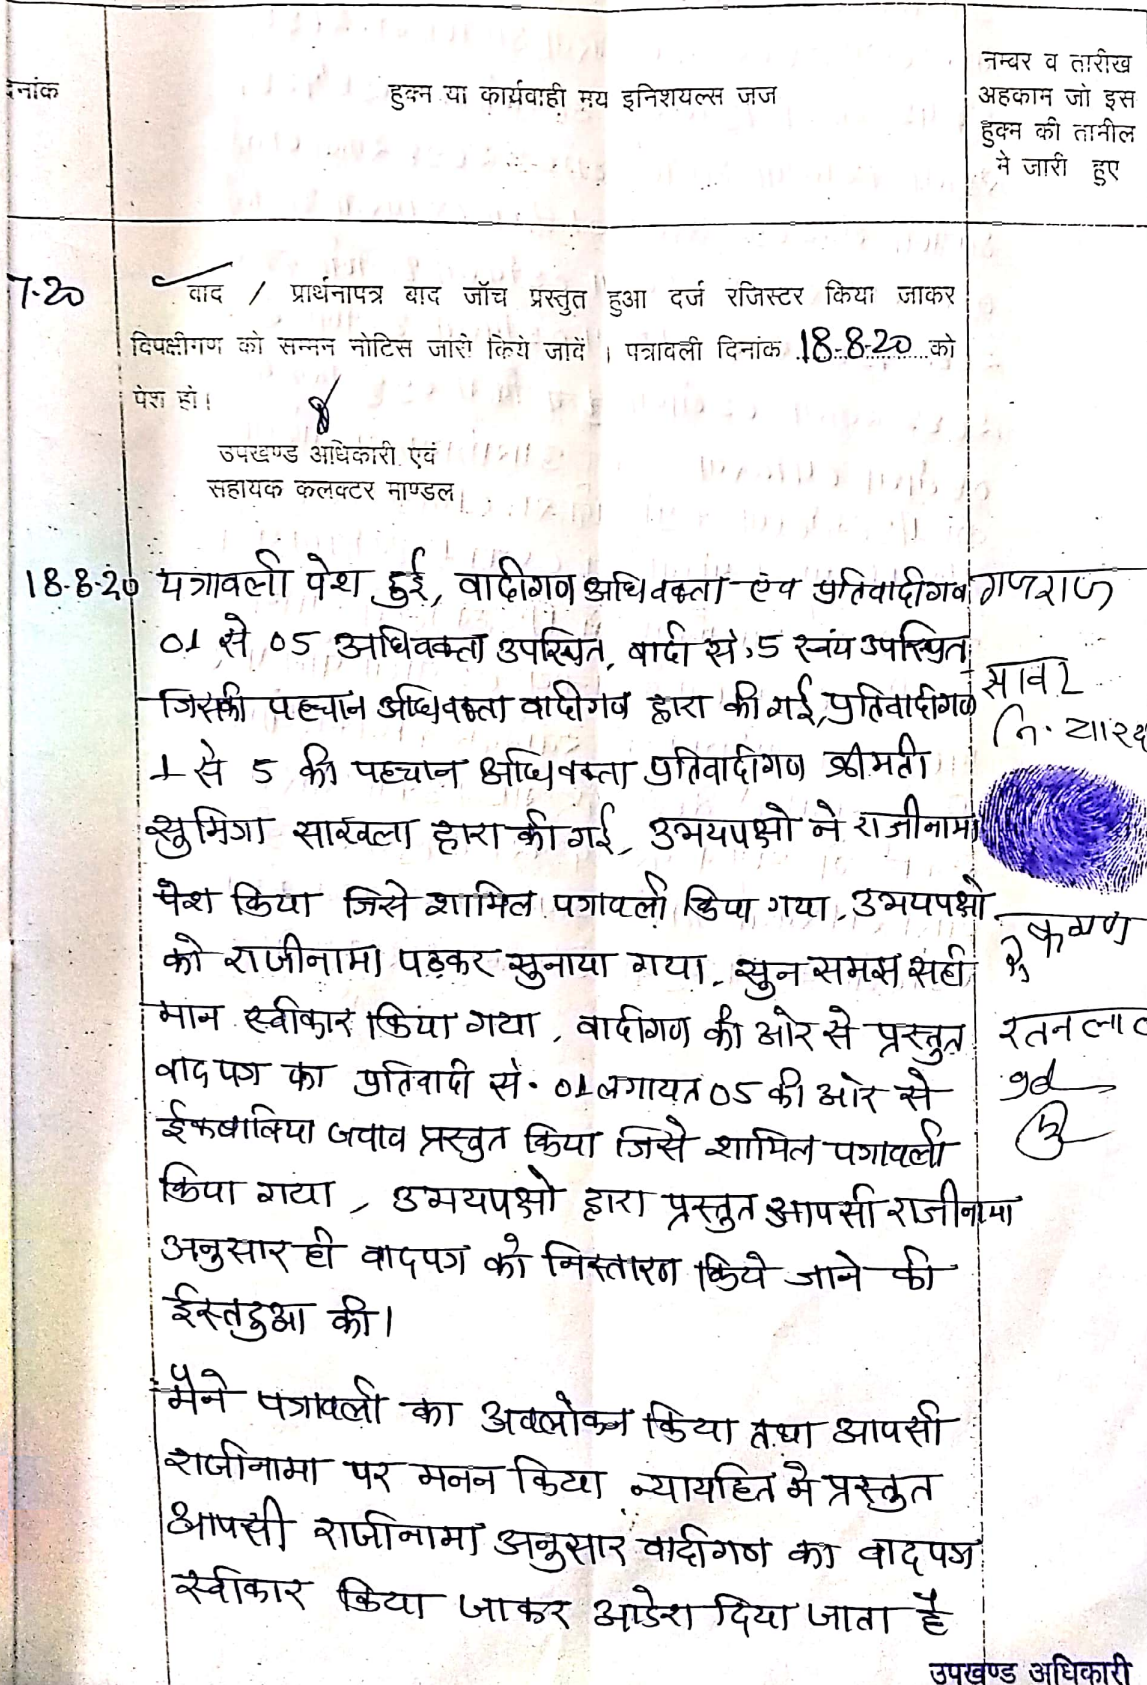 देनांक
हुक्म या कार्यवाही मय इनिशयल्स जज
नम्वर व तारीख
अहकाम जो इस
हुक्म की तामील
मे जारी हुए
7-20
वाद / प्रार्थनापत्र बाद जॉच प्रस्तुत हुआ दर्ज रजिस्टर किया जाकर
विपक्षीगण को सम्मन नोटिस जारी किये जावें । पत्रावली दिनांक 18-8-20 को
पेश हो।
उपखण्ड अधिकारी एवं
सहायक कलक्टर माण्डल
18-8-20 पत्रावली पेश हुई, वादीगण अधिवक्ता एंव प्रतिवादीगण
01 से 05 अधिवक्ता उपस्थित, वादी सं. 5 स्वंय उपस्थित
जिसकी पहचान अधिवक्ता वादीगण द्वारा की गई, प्रतिवादीगण
1 से 5 की पहचान अधिवक्ता प्रतिवादीगण श्रीमती
सुमित्रा साखला द्वारा की गई, उभयपक्षो ने राजीनामा
पेश किया जिसे शामिल पत्रावली किया गया, उभयपक्षो
को राजीनामा पढ़कर सुनाया गया, सुन समझ सही
मान स्वीकार किया गया, वादीगण की ओर से प्रस्तुत
वादपत्र का प्रतिवादी सं. 01 लगायत 05 की ओर से
ईकबालिया जवाव प्रस्तुत किया जिसे शामिल पत्रावली
किया गया, उभयपक्षो द्वारा प्रस्तुत आपसी राजीनामा
अनुसार ही वादपत्र को निस्तारण किये जाने की
ईस्तदुआ की।
मैने पत्रावली का अवलोकन किया तथा आपसी
राजीनामा पर मनन किया न्यायहित मे प्रस्तुत
आपसी राजीनामा अनुसार वादीगण का वादपत्र
स्वीकार किया जाकर आदेश दिया जाता है
गजराज
सावर
नि.
रतनलाल
उपखण्ड अधिकारी